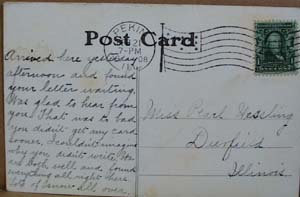 Post Card
PEKIN
21
7-PM
08
ILL.
Arrived here yesterday
afternoon and found
your letter waiting.
Was glad to hear from
you. That was to bad
you didn't get my card
sooner, I couldn't imagine
why you didn't write. We
are both well and found
everything all right here.
lots of snow all over.
Miss Pearl Wessling
Deerfield
Illinois